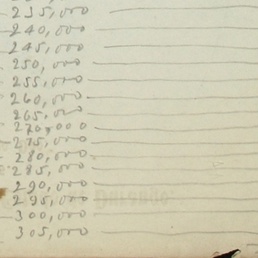 235,000
240,000
245,000
250,000
255,000
260,000
265,000
270,000
275,000
280,000
285,000
290,000
295,000
300,000
305,000